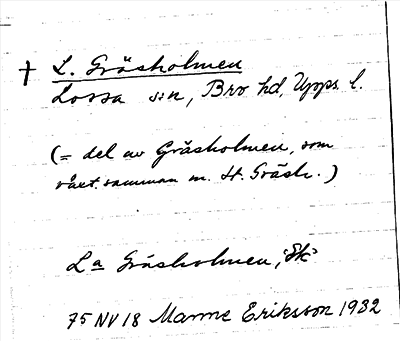 † L. Gräsholmen
Lossa s:n, Bro hd, Upps. l.
(= del av Gräsholmen, som
växt samman m. St. Gräsh.)
La Gräsholmen, Ek
75 NV 18 Manne Eriksson 1932